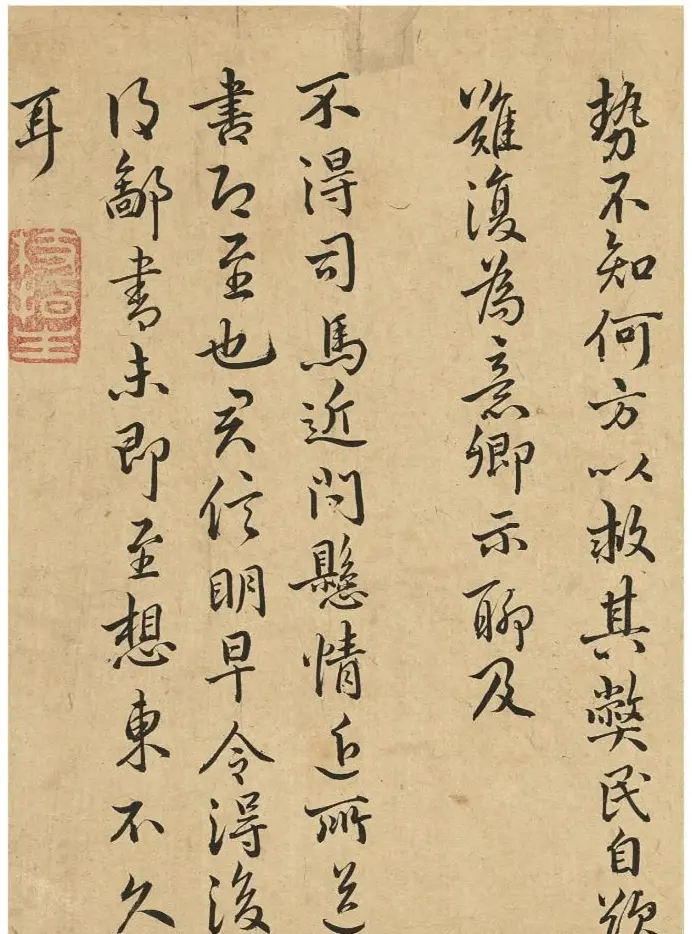 勢不知何方以救其弊民自
難復為意卿示聊及
不得司馬近問懸情近所送
書即至也信明早令得復
鄙書未即至想東不久
耳